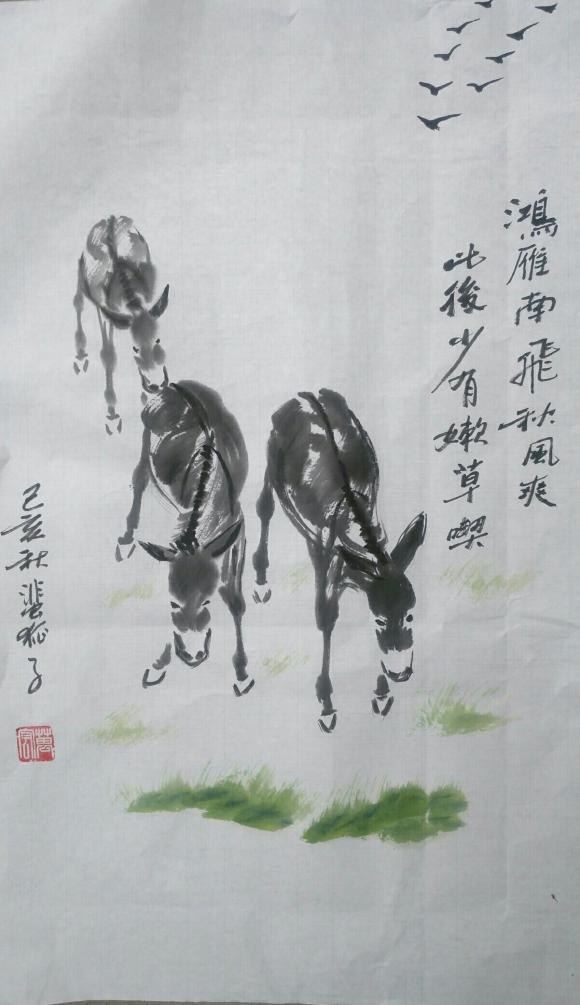 鴻雁南飛秋風爽
此後少有嫩草喫
己亥秋 狐子